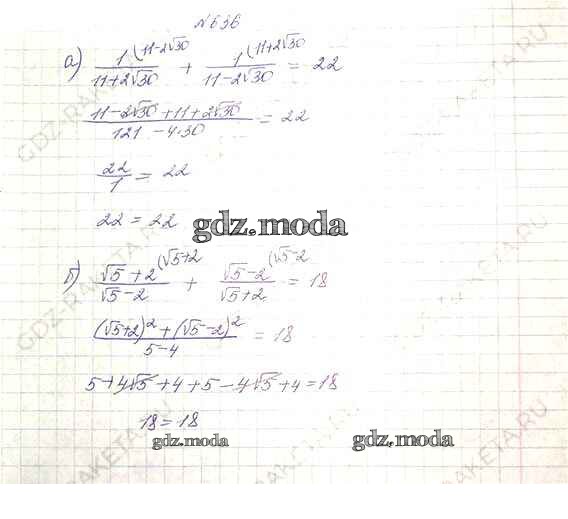 №656
а) 1(11-2√30 / 11+2√30 + 1(11+2√30 / 11-2√30 = 22
11-2√30+11+2√30 / 121-4·30 = 22
22/1 = 22
22 = 22
gdz.moda
б) √5+2(√5+2 / √5-2 + √5-2(√5-2 / √5+2 = 18
(√5+2)²+(√5-2)² / 5-4 = 18
5+4√5+4+5-4√5+4=18
18=18
gdz.moda
gdz.moda
GDZ-RAKETA.RU
GDZ-RAKETA.RU